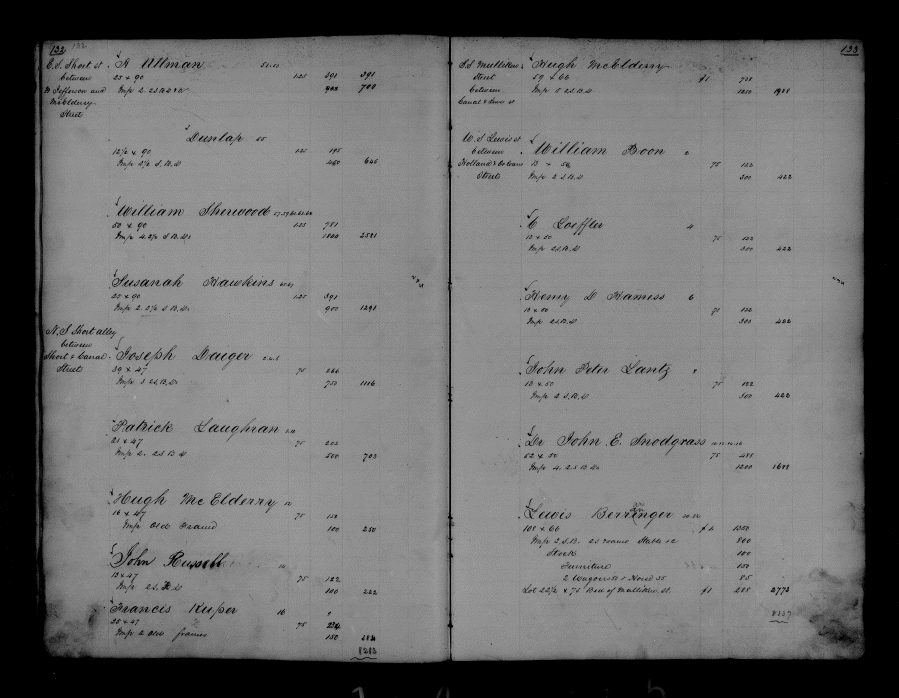 132
E.S. Short st
between
N Jefferson and
McElderry
Street
A Altman
25 x 90 125 391 391
Imp 2. 2 S B 700
Dunlap
12½ x 90 125 195
460
William Sherwood
50 x 90 125 781
Imp 4. 2½ S.B.Ds 1800 2581
Susanah Hawkins
25 x 90 125 391
Imp 2. 2½ S.B.Ds 900 1291
N.S Short alley
between
Short & Canal
Street
Joseph Daiger 2.4.6
39 x 47 75 366
Imp 3 2S.B.Ds 750 1116
Patrick Laughran
21 x 47 75 203
Imp 2. 2S B D 500 703
Hugh McElderry
16 x 47 75 150
Imp Old Framed 100 250
John Russell
13 x 47 75 122
Imp 2S. 100 222
Francis Kuper 16
25 x 47 75 234
Imp 2 Old frames 150 384
8283
133
S.S Mulliken
Street
between
Canal &
Hugh McElderry
59 x 66 $1 738
Imp 5 2S.B.D 1250 1988
W.S Lewis st
between
Holland & Orleans
Street
William Boon 2
13 x 50 75 122
Imp 2 S.B.D 300 422
C Loeffler 4
13 x 50 75 122
Imp 2S.B.D 300 422
Henry D Hamess 6
13 x 50 75 122
Imp 2S.B.D 300 422
John Peter Lantz
13 x 50 75 122
Imp 2 S.B.D 300 422
Dr John E. Snodgrass
52 x 50 75 488
Imp 4. 2 S B Ds 1200 1688
Lewis Berringer
108 x 66 $1 1350
Imp 2.S.B. 2S Frame Stable &c 800
Stock 100
Furniture 150
2 Wagons & Horse 85 85
Lot 22½ x 75 Rear of Mulliken st. $1 288 2773
8137